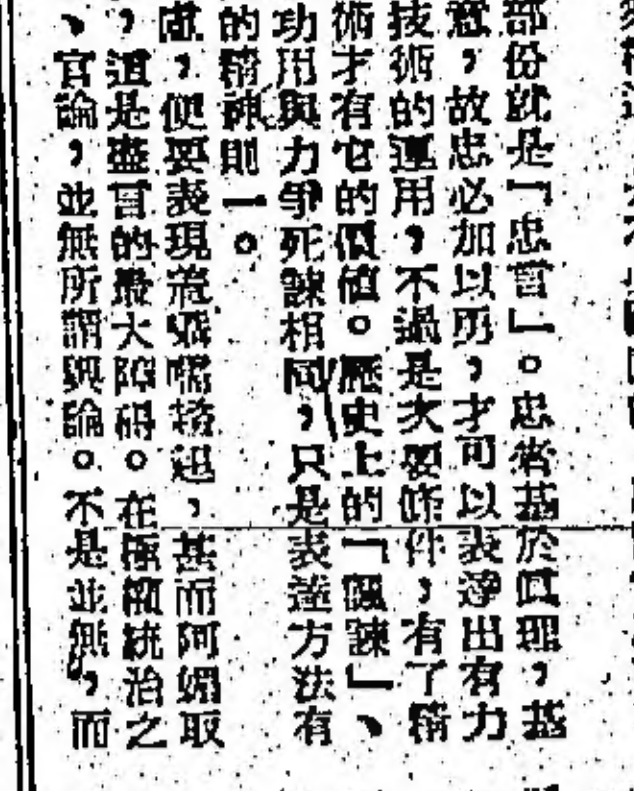 部份就是「忠言」。忠者基於眞理，基
意，故忠必加以勇，才可以表達出有力
技術的運用，不過是次要條件，有了精
術才有它的價值。歷史上的「諷諫」、
功用與力爭死諫相同，只是表達方法有
的精神則一。
慮，便要表現
，甚而阿媚取
，這是盡言的最大障碍。在極權統治之
、官論，並無所謂輿論。不是並無，而